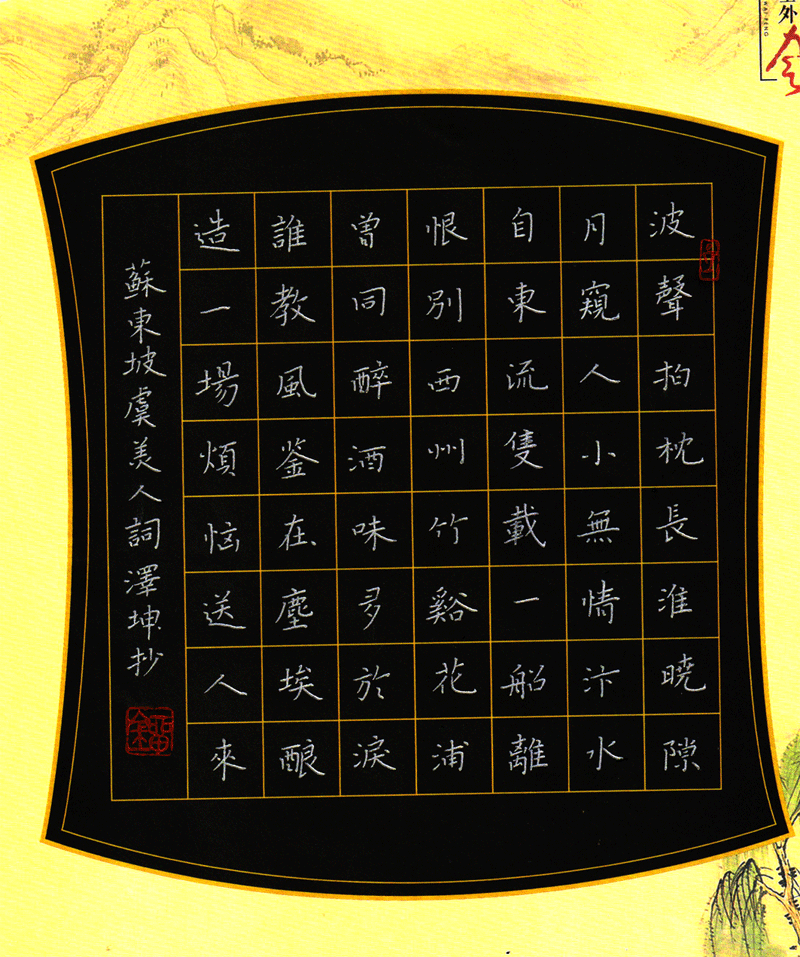 波聲拍枕長淮曉隙
月窺人小無情汴水
自東流隻載一船離
恨別西州竹谿花浦
曾同醉酒味多於淚
誰教風鉴在塵埃酿
造一場煩恼送人來
蘇東坡虞美人詞澤坤抄